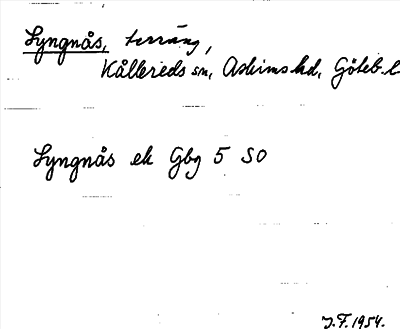 Lyngnås, terräng,
Kållereds sn, Askims hd, Göteb. l
Lyngnås ek Gbg 5 SO
J.F. 1954.